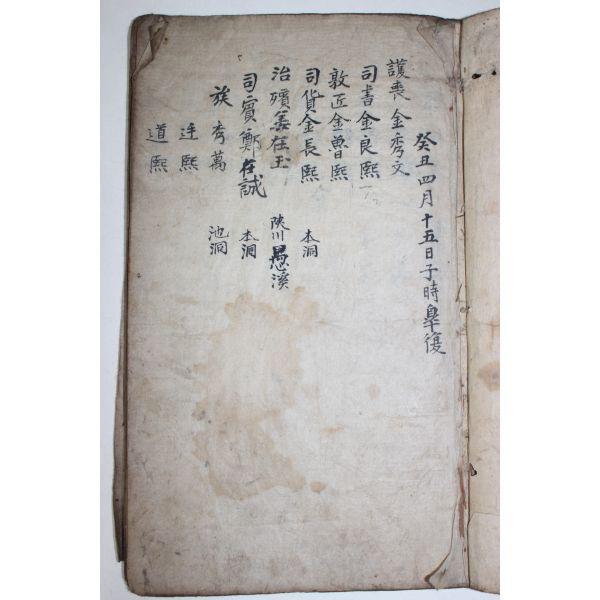 癸丑四月十五日子時皐復
護喪金秀文
司書金良熙
敦匠金曾熙
司貨金長熙 本洞
治殯姜在玉 陜川愚溪
司賓鄭在誠 本洞
族秀萬 池洞
廷熙
道熙